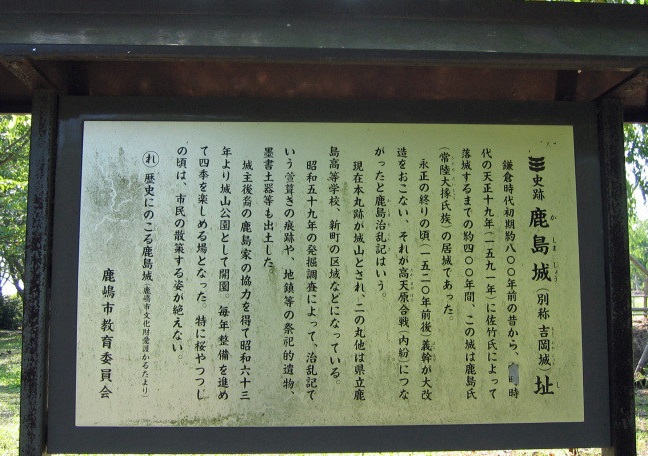 史跡 鹿島城(別称 吉岡城)址
か しま じょう し
鎌倉時代初期約八〇〇年前の昔から、 時
代の天正十九年(一五九一年)に佐竹氏によって
落城するまでの約四〇〇年間、この城は鹿島氏
(常陸大掾氏族)の居城であった。
永正の終りの頃(一五二〇年前後)義幹が大改
造をおこない、それが高天原合戦(内紛)につな
がったと鹿島治乱記はいう。
現在本丸跡が城山とされ、二の丸他は県立鹿
島高等学校、新町の区域などになっている。
昭和五十九年の発掘調査によって、治乱記で
いう萱葺きの痕跡や、地鎮等の祭祀的遺物、
墨書土器等も出土した。
城主後裔の鹿島家の協力を得て昭和六十三
年より城山公園として開園。毎年整備を進め
て四季を楽しめる場となった。特に桜やつつじ
の頃は、市民の散策する姿が絶えない。
れ 歴史にのこる鹿島城(鹿嶋市文化財愛護かるたより)
鹿嶋市教育委員会